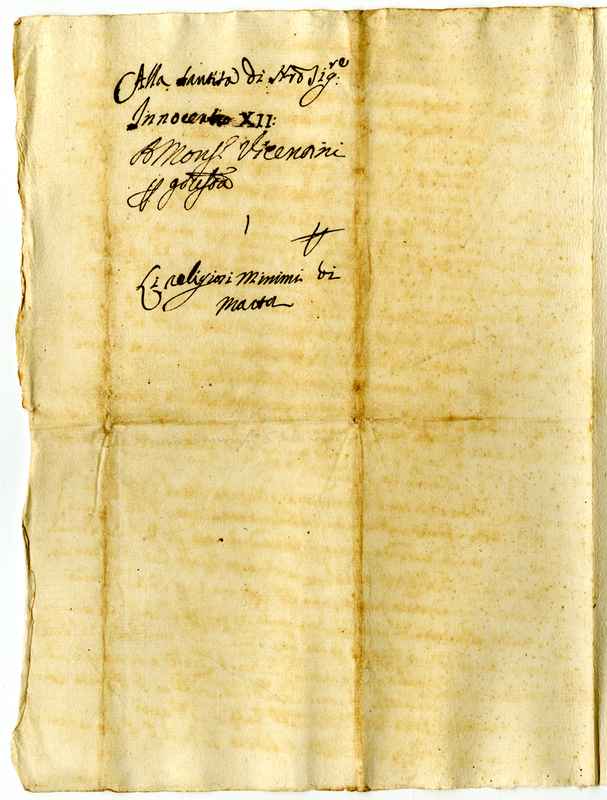 Alla Santità di Nro Sig:re
Innocentio XII:
A Mons.r Vicentini
1
Li religiosi Minimi di